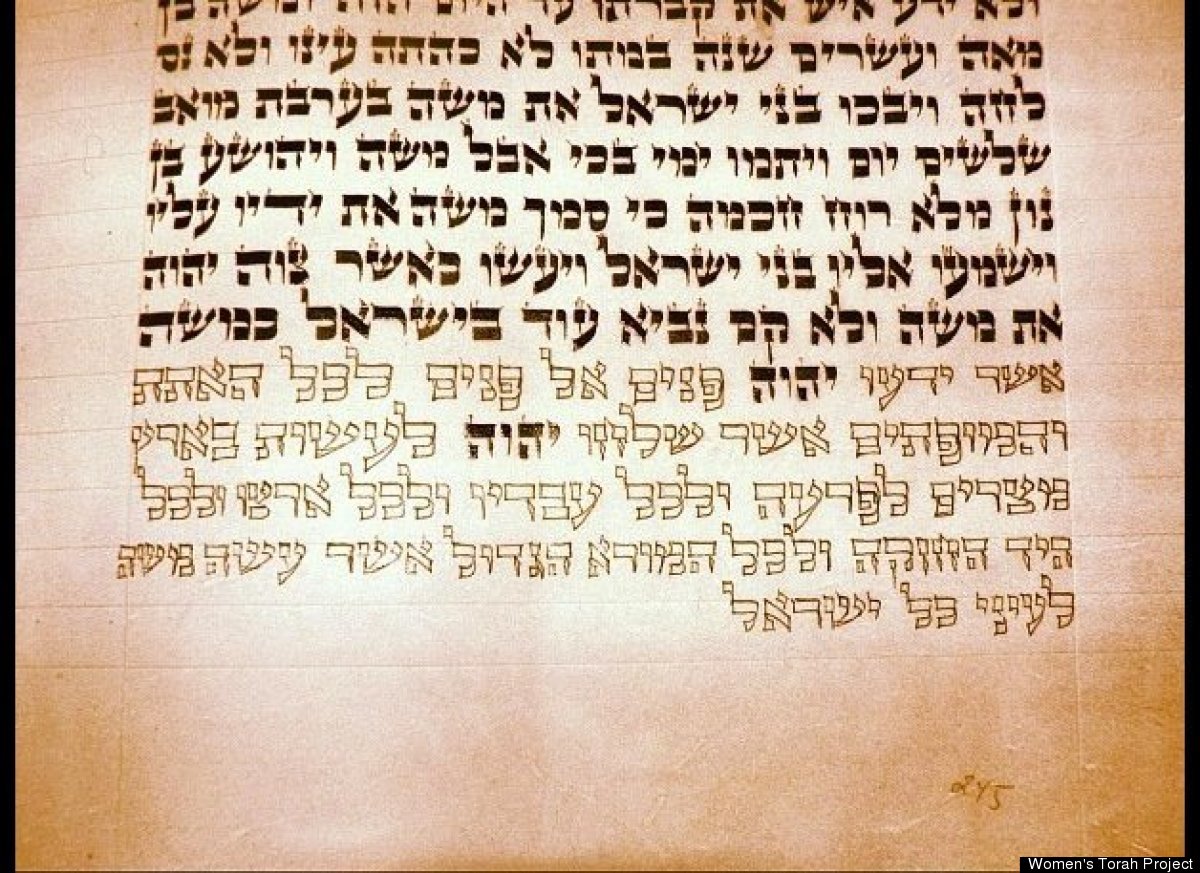 ולא ידע איש את קברתו עד היום הזה ומשה בן
מאה ועשרים שנה במתו לא כהתה עינו ולא נס
לחה ויבכו בני ישראל את משה בערבת מואב
שלשים יום ויתמו ימי בכי אבל משה ויהושע בן
נון מלא רוח חכמה כי סמך משה את ידיו עליו
וישמעו אליו בני ישראל ויעשו כאשר צוה יהוה
את משה ולא קם נביא עוד בישראל כמשה
אשר ידעו יהוה פנים אל פנים לכל האתת
והמופתים אשר שלחו יהוה לעשות בארץ
מצרים לפרעה ולכל עבדיו ולכל ארצו ולכל
היד החזקה ולכל המורא הגדול אשר עשה משה
לעיני כל ישראל
245
Women's Torah Project